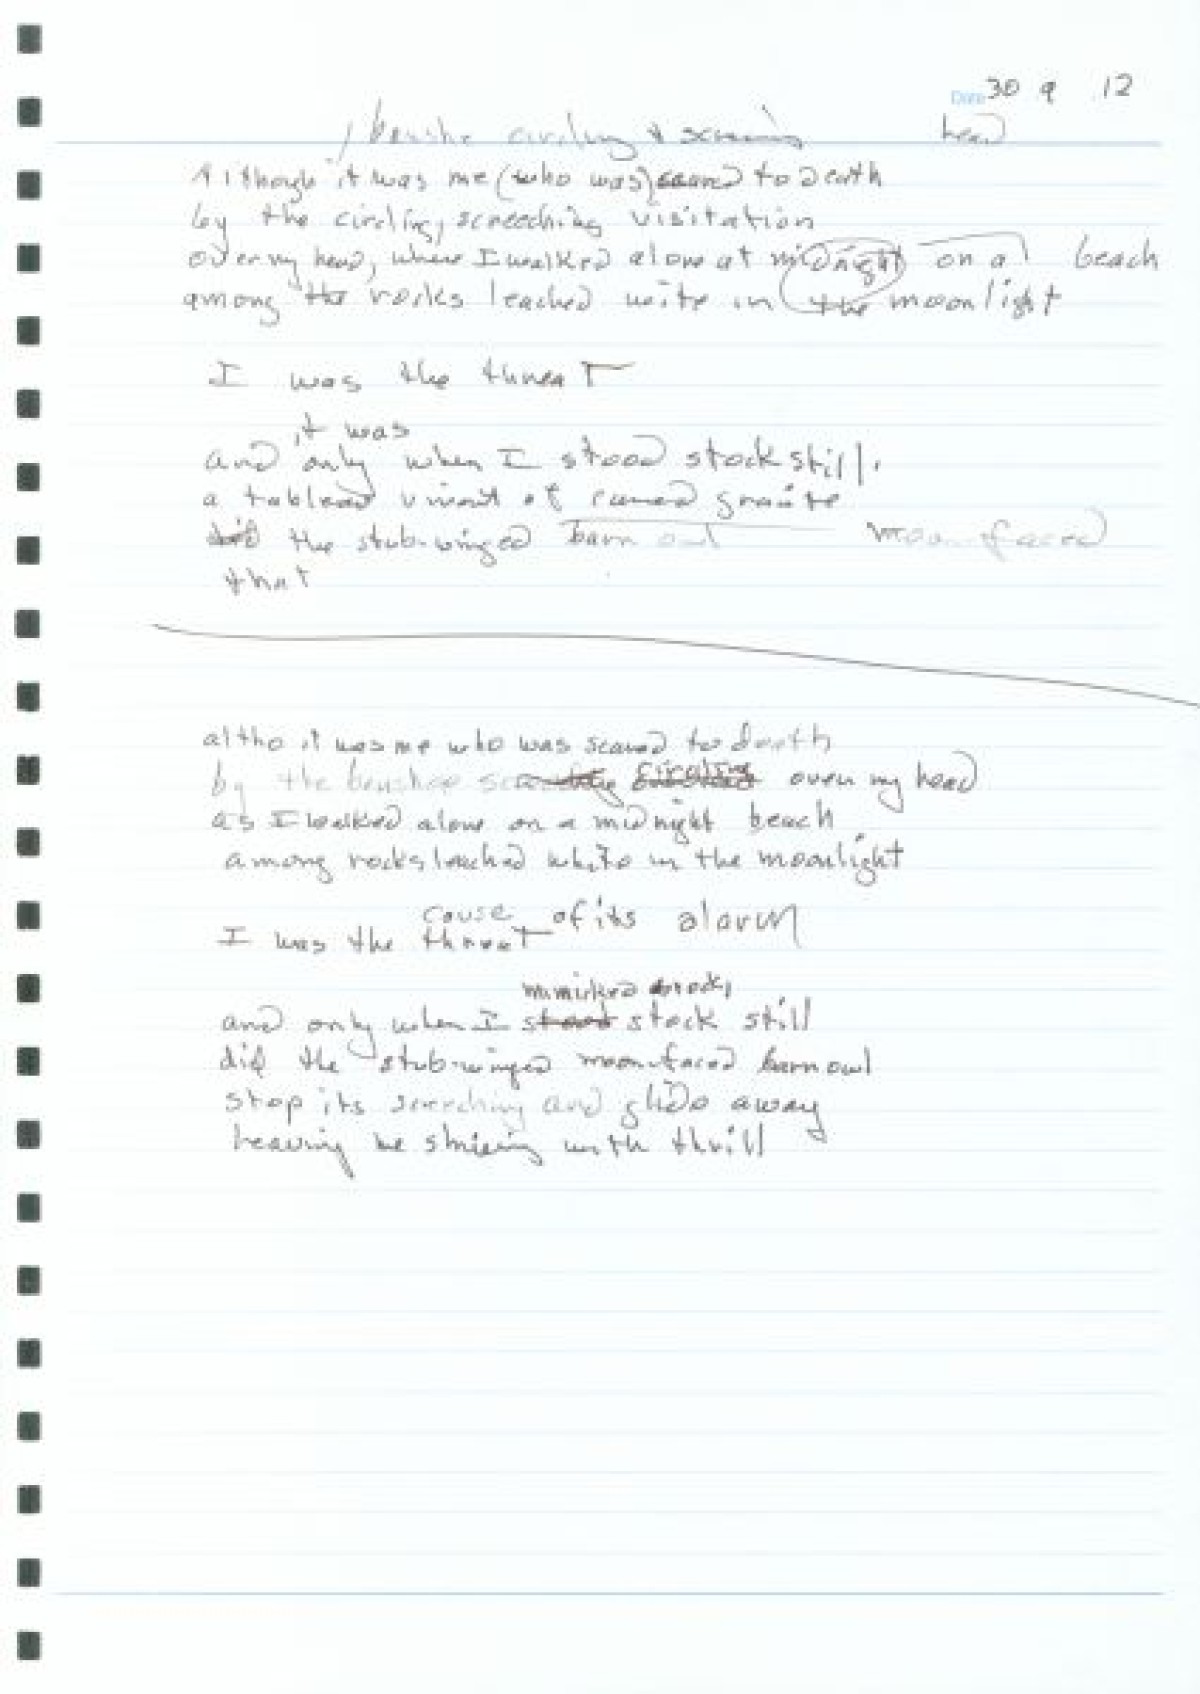 Date 30 9 12
banshe circling & head
Although it was me (who was) scared to death
by the circling, screeching visitation
over my head, where I walked alone at midnight on a beach
among the rocks leached wite in the moonlight
I was the threat
it was
and only when I stood stock still,
a tableau vivant of granite
did the stub-winged barn owl moonfaced
that
altho it was me who was scared to death
by the banshee circling over my head
as I walked alone on a midnight beach
among rocks leached white in the moonlight
cause of its alarm
I was the threat
mimicked rock,
and only when I stood stock still
did the stub-winged moonfaced barn owl
stop its screeching and glide away
leaving me with thrill